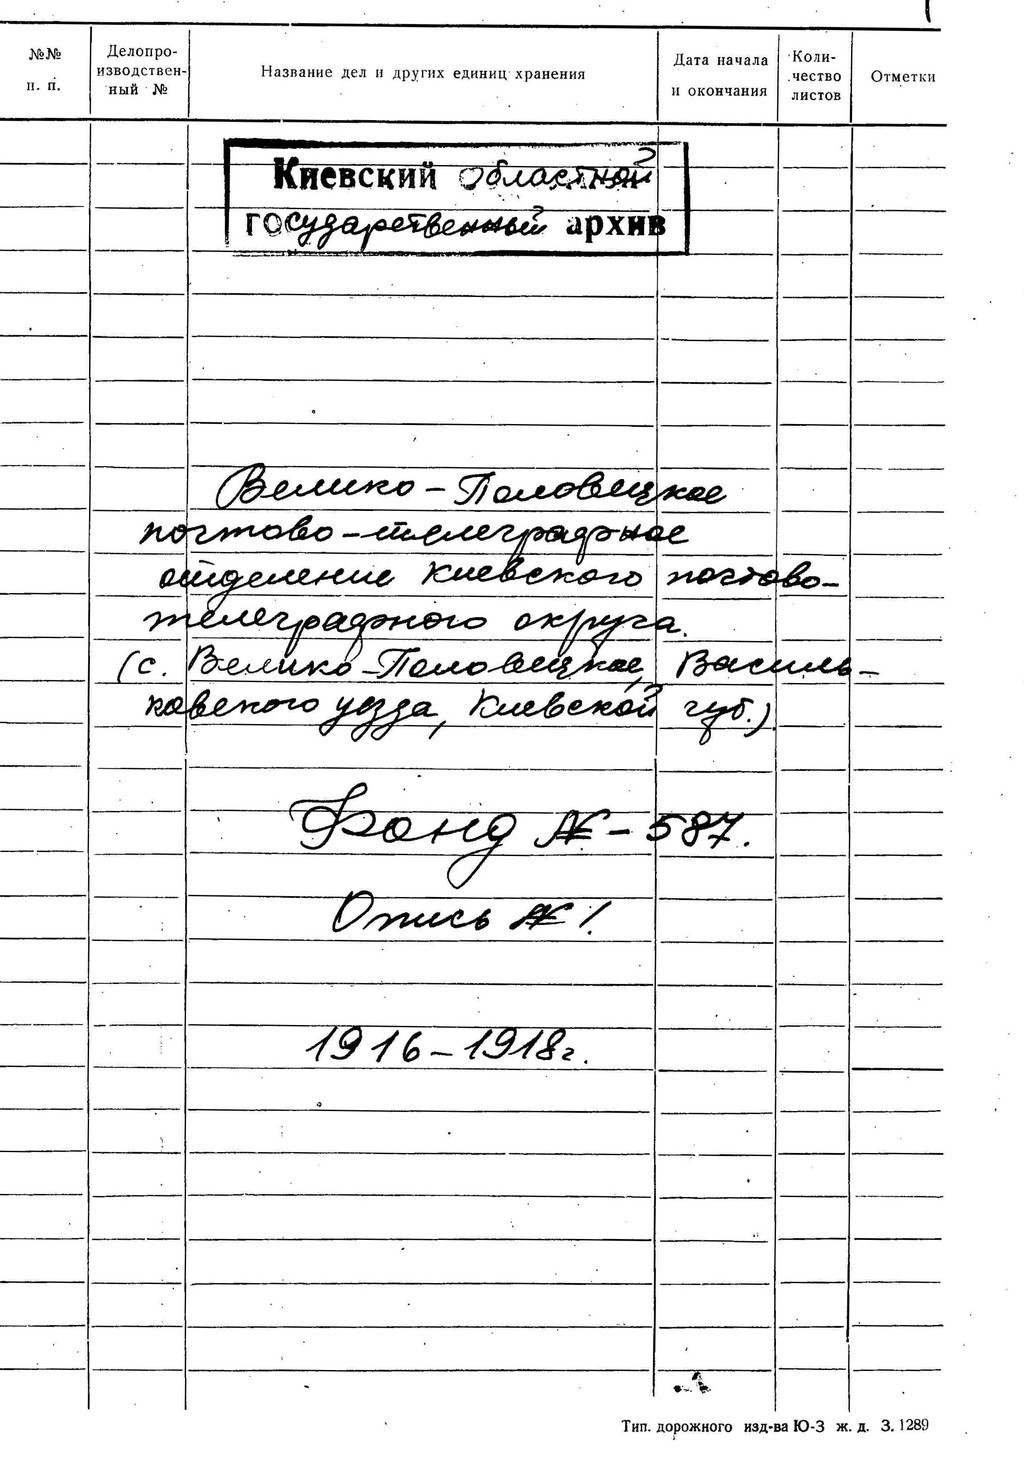 №№ п. п.
Делопро-изводствен-ный №
Название дел и других единиц хранения
Дата начала и окончания
Коли-чество листов
Отметки
Киевский областной
государственный архив
Велико-Половецкое
почтово-телеграфное
отделение Киевского почтово-
телеграфного округа.
(с. Велико-Половецкое, Василь-
ковского уезда, Киевской губ.)
Фонд № - 587.
Опись № 1.
1916-1918г.
Тип. дорожного изд-ва Ю-З ж. д. З. 1289